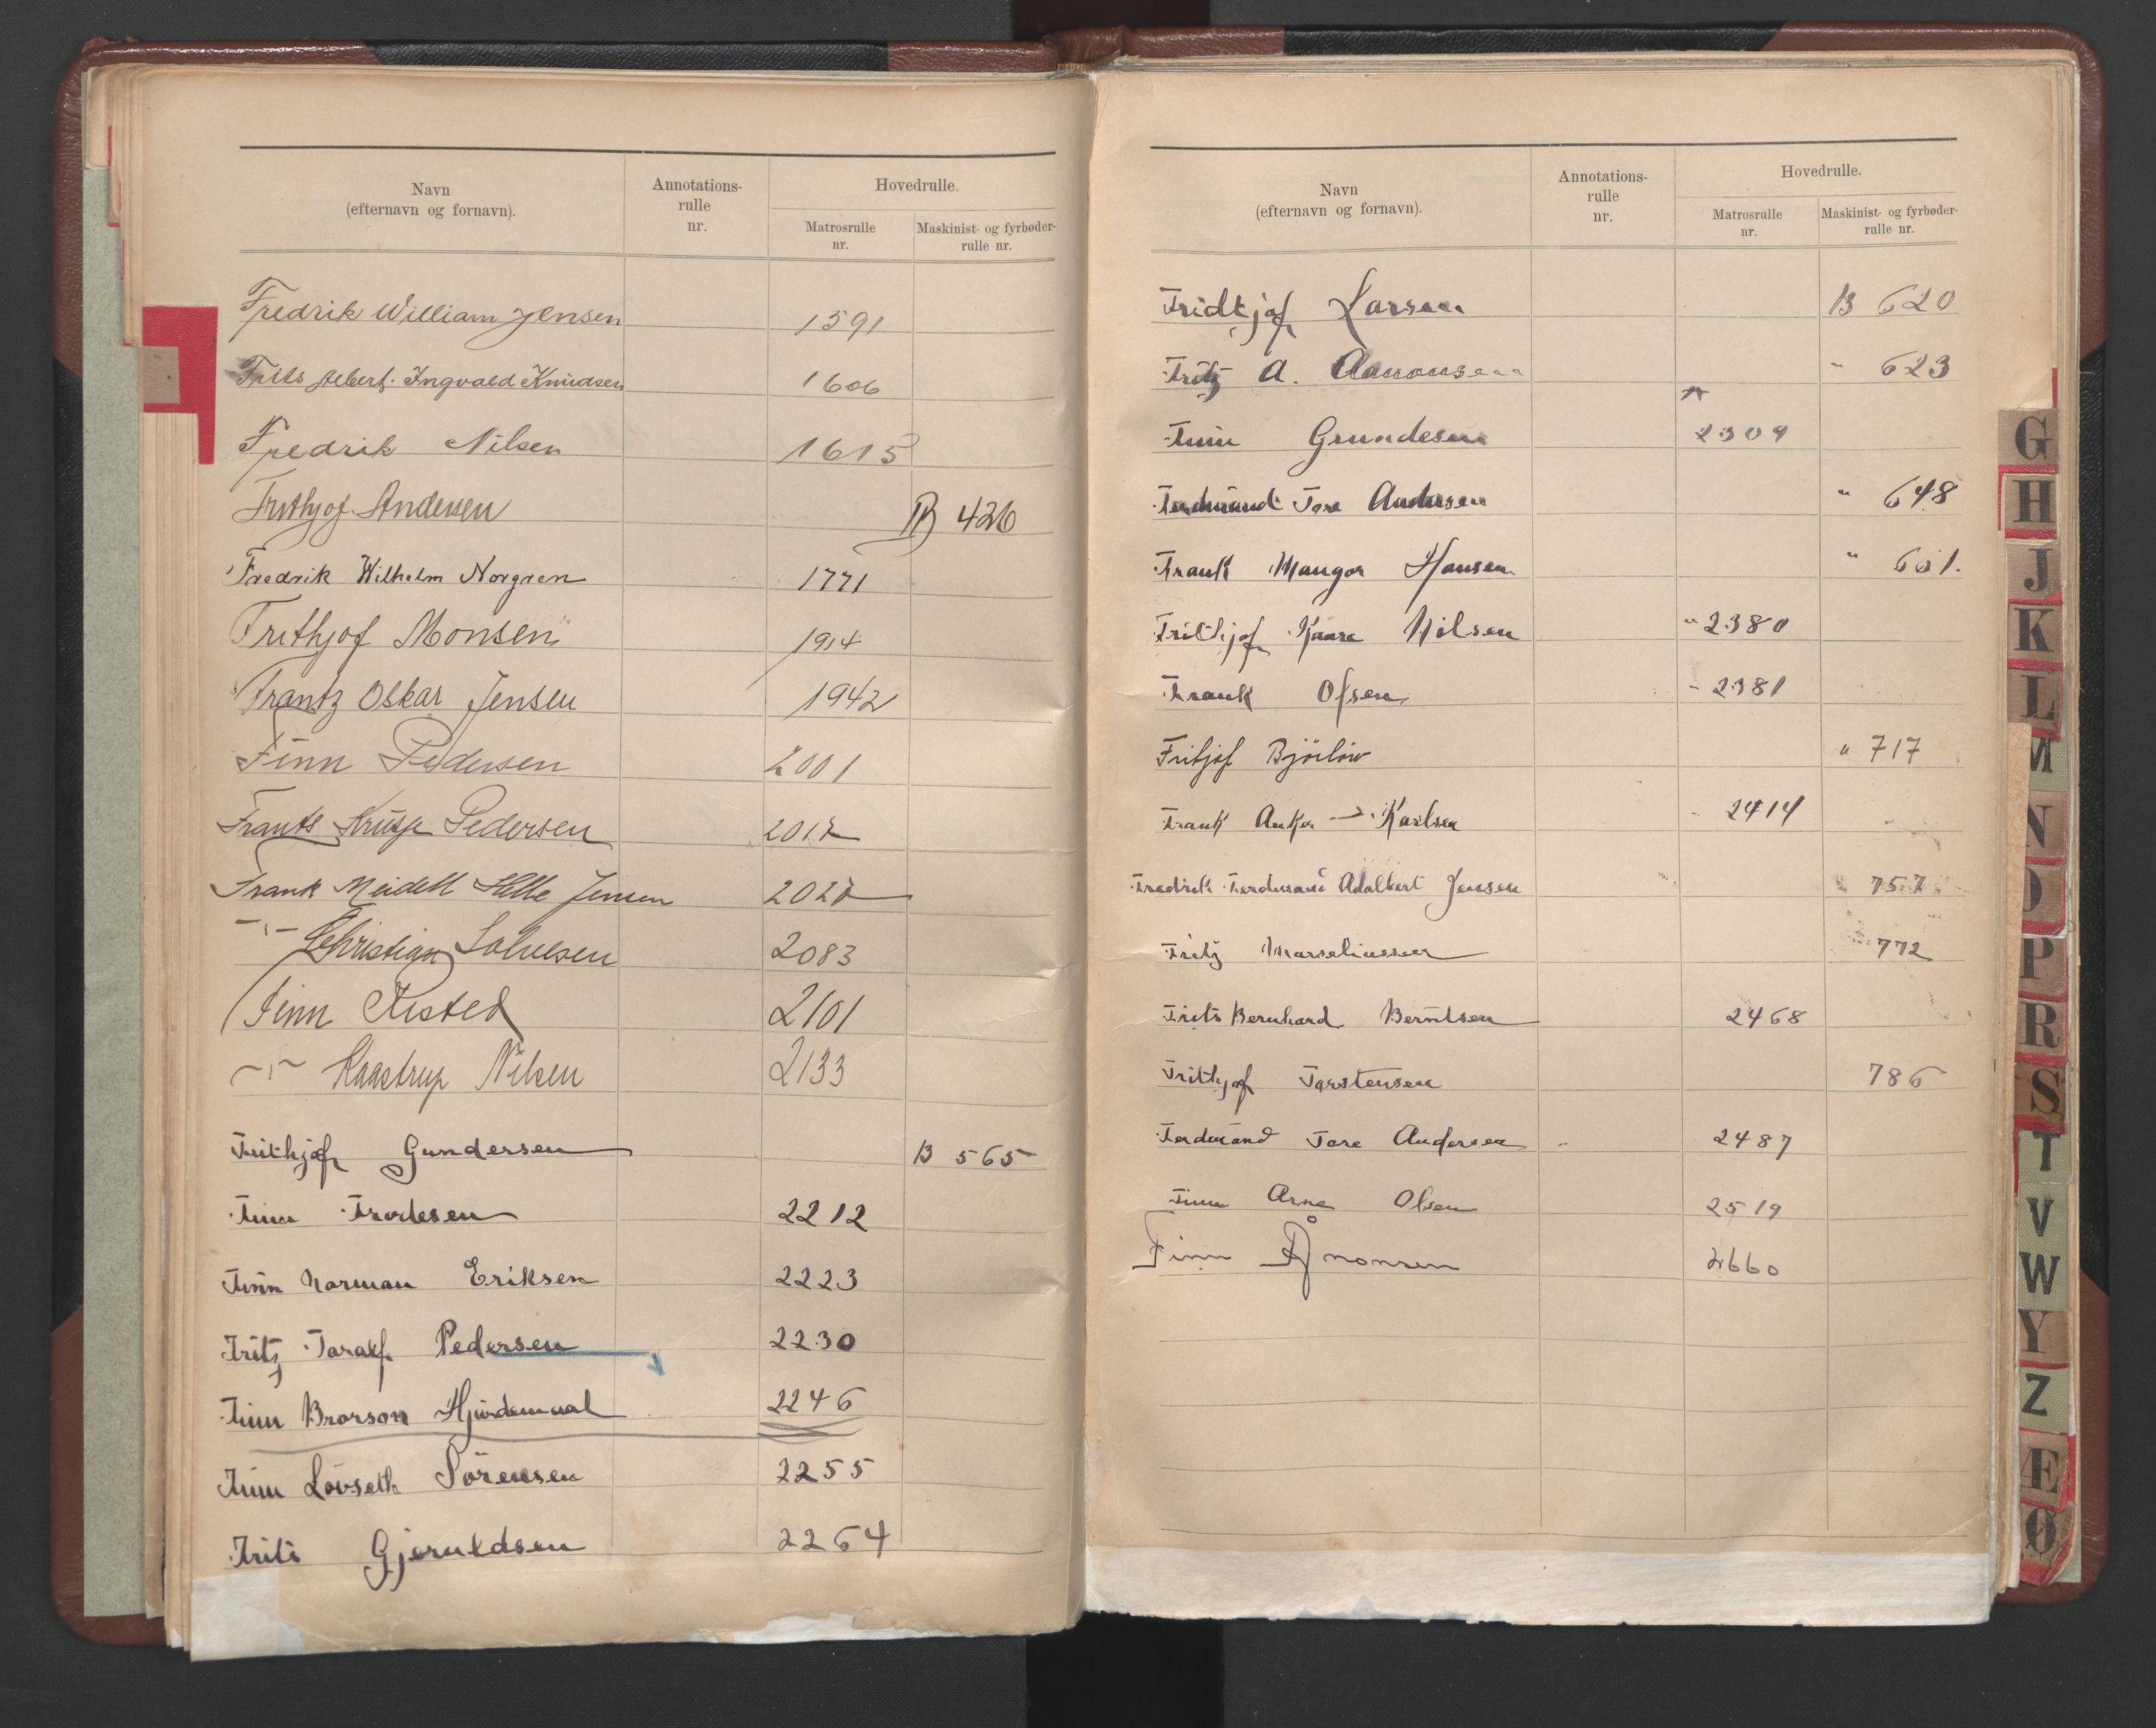 Navn
(efternavn og fornavn).
Annotations-
rulle
nr.
Hovedrulle.
Matrosrulle
nr.
Maskinist- og fyrbøder-
rulle nr.
Fredrik William Jensen 1591
Frits Albert Ingvald Knudsen 1606
Fredrik Nilsen 1615
Frithjof Andersen B 426
Fredrik Wilhelm Norgren 1771
Frithjof Monsen 1914
Frantz Oskar Jensen 1942
Finn Pedersen 2001
Frants Pedersen 2012
Frank Meidell Jensen 2027
-"- Christian 2083
Finn 2101
-"- Kaastrup Nilsen 2133
Frithjof Gundersen B 565
Finn Frodesen 2212
Finn Norman Eriksen 2223
Fritz Toralf Pedersen 2230
Finn Brorson 2246
Finn Lövseth Sörensen 2255
Frits Gjeruldsen 2264
Navn
(efternavn og fornavn).
Annotations-
rulle
nr.
Hovedrulle.
Matrosrulle
nr.
Maskinist- og fyrbøder-
rulle nr.
Fridtjof Larsen B 620
Fritz A. Aanonsen - 623
Finn Grundesen 2309
Ferdinand Tore Andersen " 648
Frank Mangor Hansen "
Frithjof Kaare Nilsen " 2380
Frank Olsen - 2381
Fritjof " 717
Frank Anker Karlsen - 2414
Fredrik Ferdinand Adalbert Jensen " 757
Fritz Marseliussen " 772
Frits Bernhard Berntsen 2468
Frithjof Torstensen 786
Ferdinand Tore Andersen 2487
Finn Arne Olsen 2519
Finn Ånonsen 2660
G
H
J
K
L
M
N
O
P
R
S
T
V
W
Y
Z
Æ
Ø